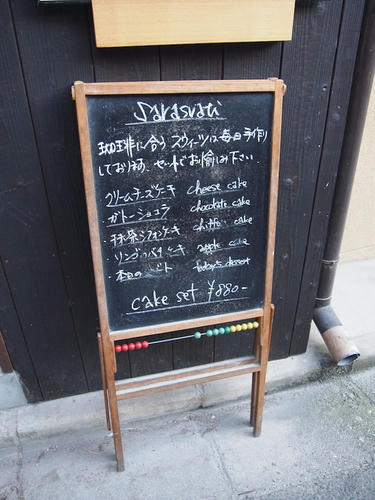 Sarasvati
珈琲に合うスウィーツは毎日手作り
しております。セットでお愉しみ下さい。
クリームチーズケーキ cheese cake
ガトーショコラ chocolate cake
抹茶シフォンケーキ chiffon cake
リンゴ ケーキ apple cake
本日の today's dessert
cake set ¥880-